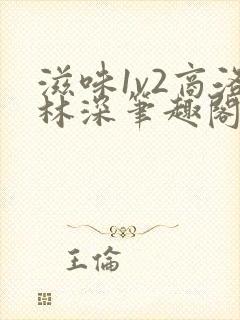 滋味1v2高洛
林深笔趣阁
王倫